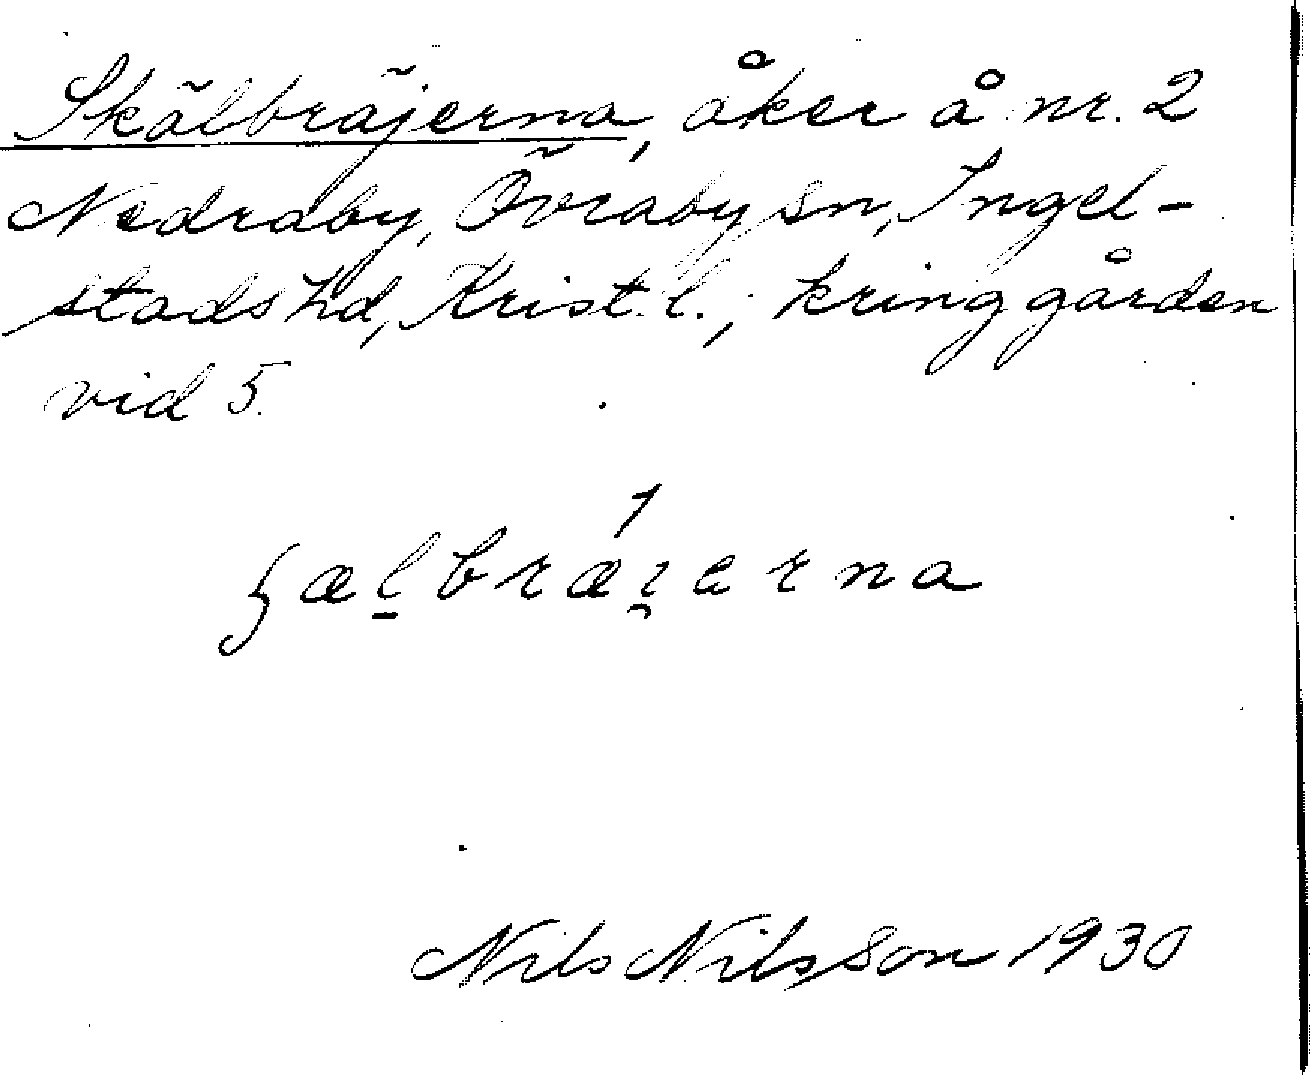 Skälbräjerna, åker å nr. 2
Nedraby, Övraby sn, Ingel-
stads hd, Krist. l., kring gården
vid 5.
ʂæl̠bræ´ı̯erna
Nils Nilsson 1930